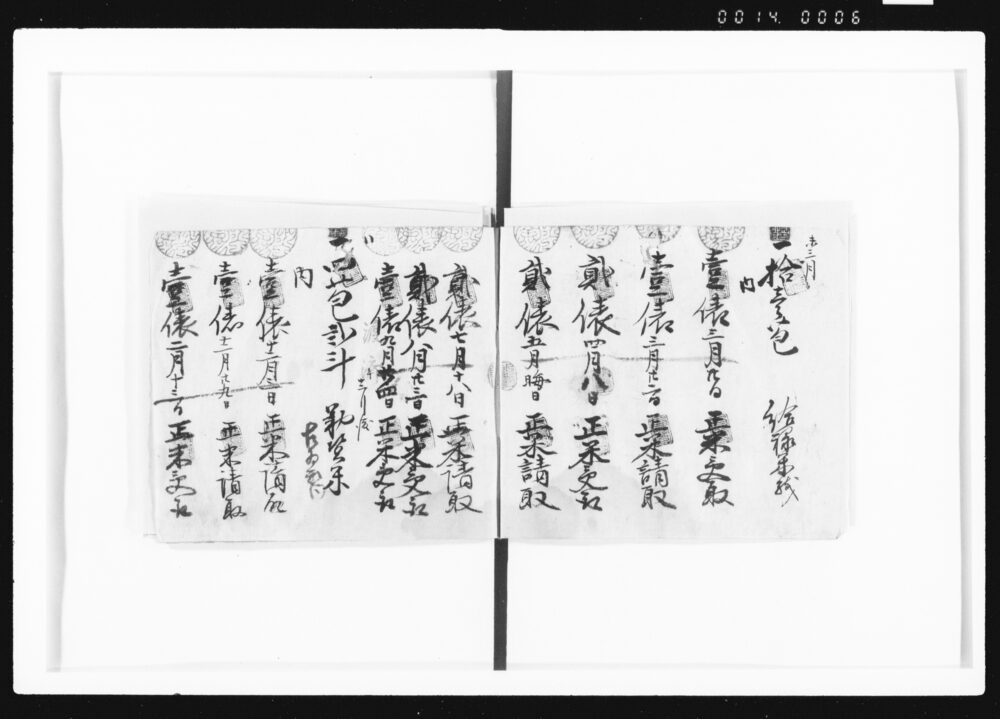 0014 0006
未三月
一拾壱包 給禄米残
内
壹俵三月廿日 正米受取
壹俵三月廿二日 正米請取
貮俵四月八日 正米受取
貮俵五月晦日 正米請取
貮俵七月十八日 正米請取
貮俵八月廿三日 正米受取
壹俵九月廿四日 正米受取
十二月渡
一四包弐斗 勤料米
内
壹俵十二月三日 正米請取
壹俵十二月廿九日 正米請取
壹俵二月十三日 正米受取